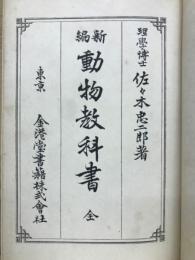 理學博士 佐々木忠二郎著
新編 動物教科書 全
東京 金港堂書籍株式會社